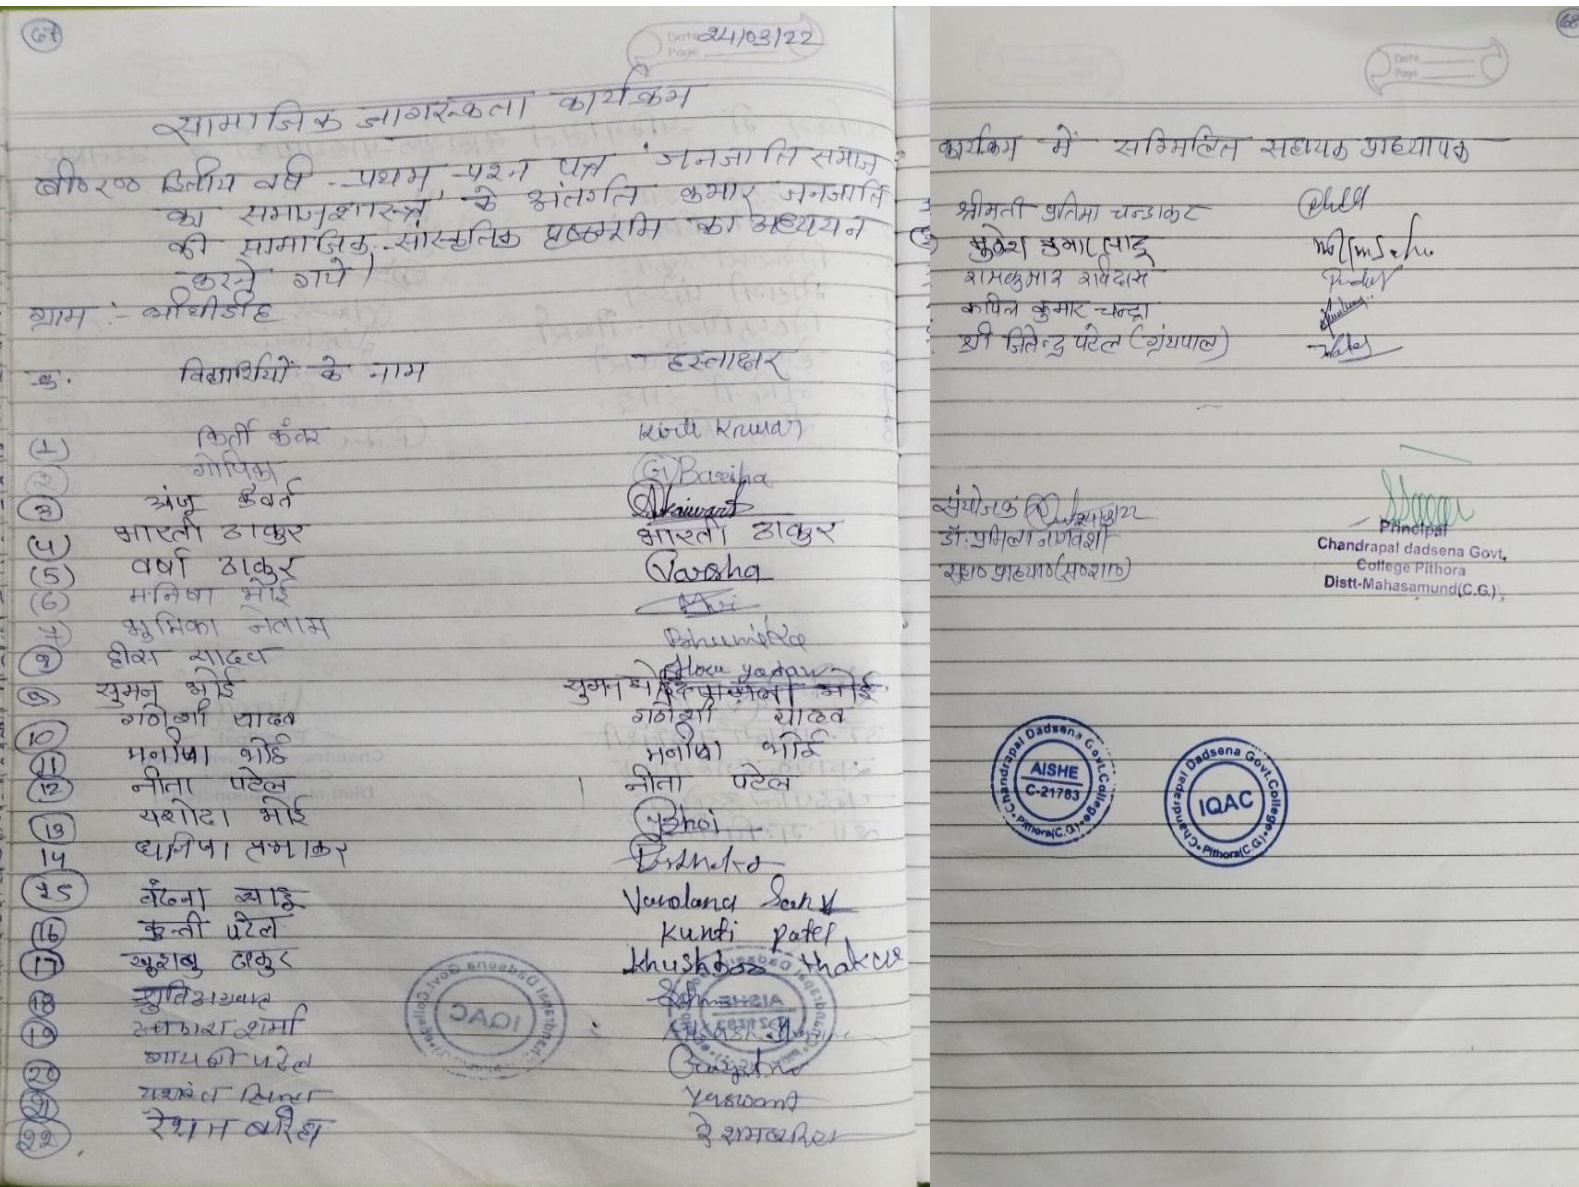 67
Date 24/03/22
Page
सामाजिक जागरूकता कार्यक्रम
बी०ए० द्वितीय वर्ष - प्रथम प्रश्न पत्र 'जनजाति समाज
का समाजशास्त्र' के अंतर्गत कुमार जनजाति
की सामाजिक-सांस्कृतिक पृष्ठभूमि का अध्ययन
करने गये।
ग्राम :-
क्र. विद्यार्थियों के नाम - हस्ताक्षर
(1) किर्ती कंवर
2 गोपिका G Bariha
(3) अंजू कैवर्त Akaiwart
(4) भारती ठाकुर भारती ठाकुर
(5) वर्षा ठाकुर Varsha
(6) मनिषा भोई
7 भूमिका नेताम Bhumika
8 हीरा यादव Hora yadaw
9 सुमन भोई सुमन भोई
10 गणेशी यादव गणेशी यादव
11 मनीषा भोई मनीषा भोई
12 नीता पटेल नीता पटेल
13 यशोदा भोई YBhoi
14
15 वंदना साहू Vandana Sahu
16 कुन्ती पटेल Kunti Patel
17 खुशबु ठाकुर khushboo thakur
18 श्रुति अग्रवाल
19 शर्मा
20 गायत्री पटेल Gayatri
21 यशवंत सिन्हा Yaswant
22 रेशम बरिहा रेशम बरिहा
68
Date
Page
कार्यक्रम में सम्मिलित सहायक प्राध्यापक
श्रीमती प्रतिमा चन्द्राकर
मुकेश कुमार साहू
रामकुमार रविदास
कपिल कुमार चन्द्रा
श्री जितेन्द्र पटेल (ग्रंथपाल)
संयोजक
डॉ. प्रमिला नागवंशी
सहा० प्राध्या० (स०शा०)
Principal
Chandrapal dadsena Govt.
College Pithora
Distt-Mahasamund(C.G.)
Chandrapal Dadsena Govt.College Pithora(C.G.)
AISHE
C-21783
Chandrapal Dadsena Govt.College Pithora(C.G.)
IQAC